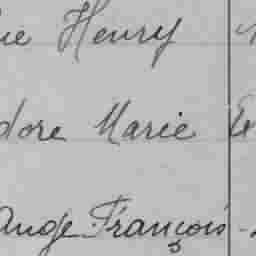 ue Henry
dore Marie
ange François